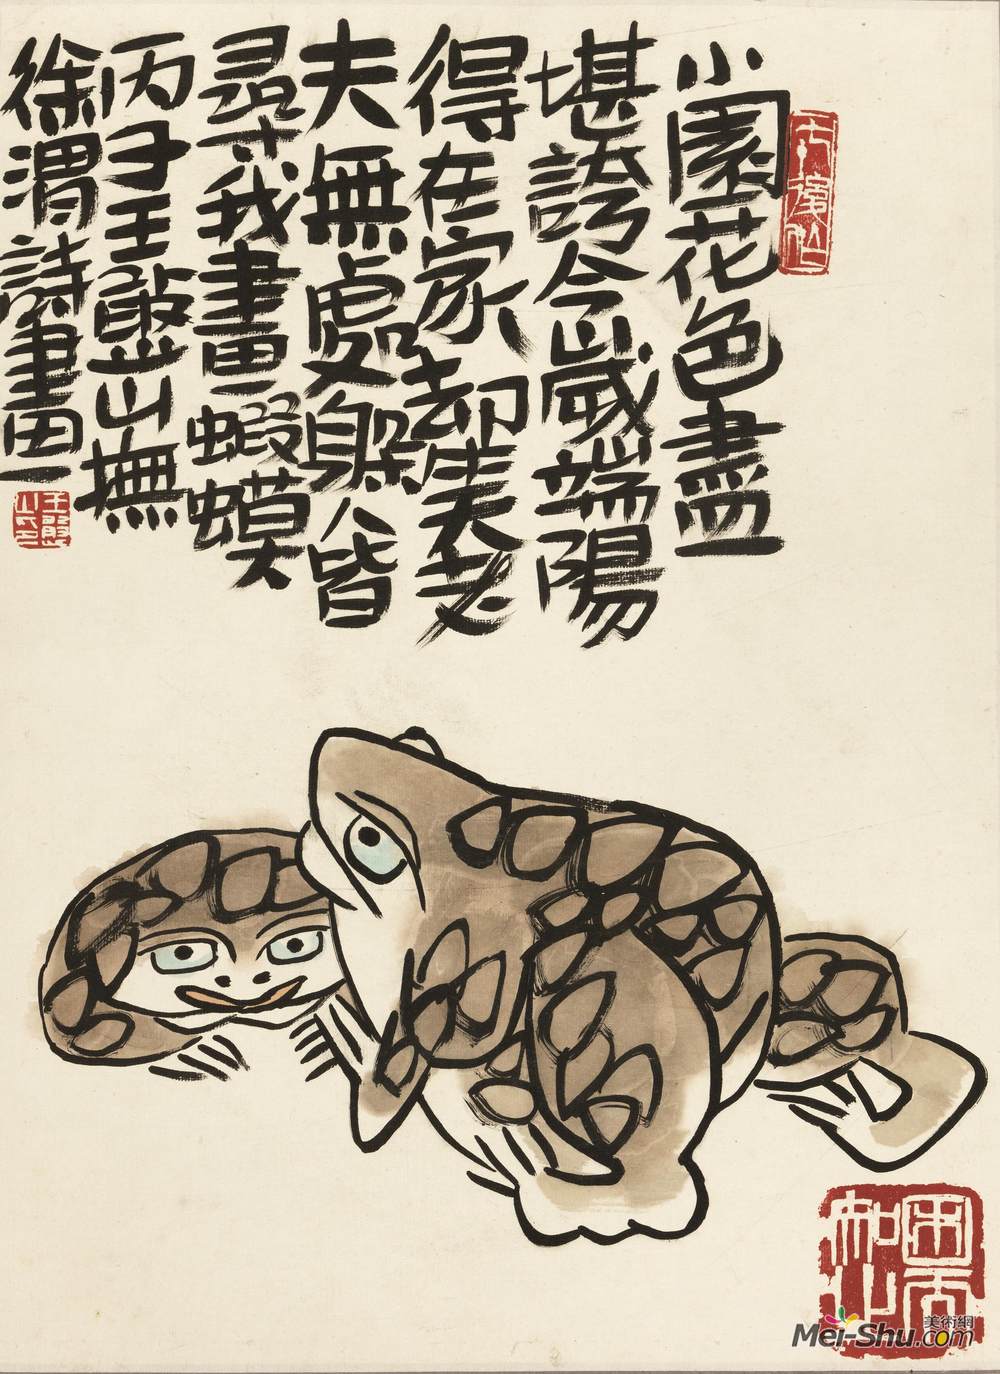 小園花色盡
堪誇今歲端陽
得在家却笑老
夫無處躲人皆
尋我畫蝦蟆
丙子王憨山撫
徐渭詩畫
王憨
美術網
Mei-Shu.com